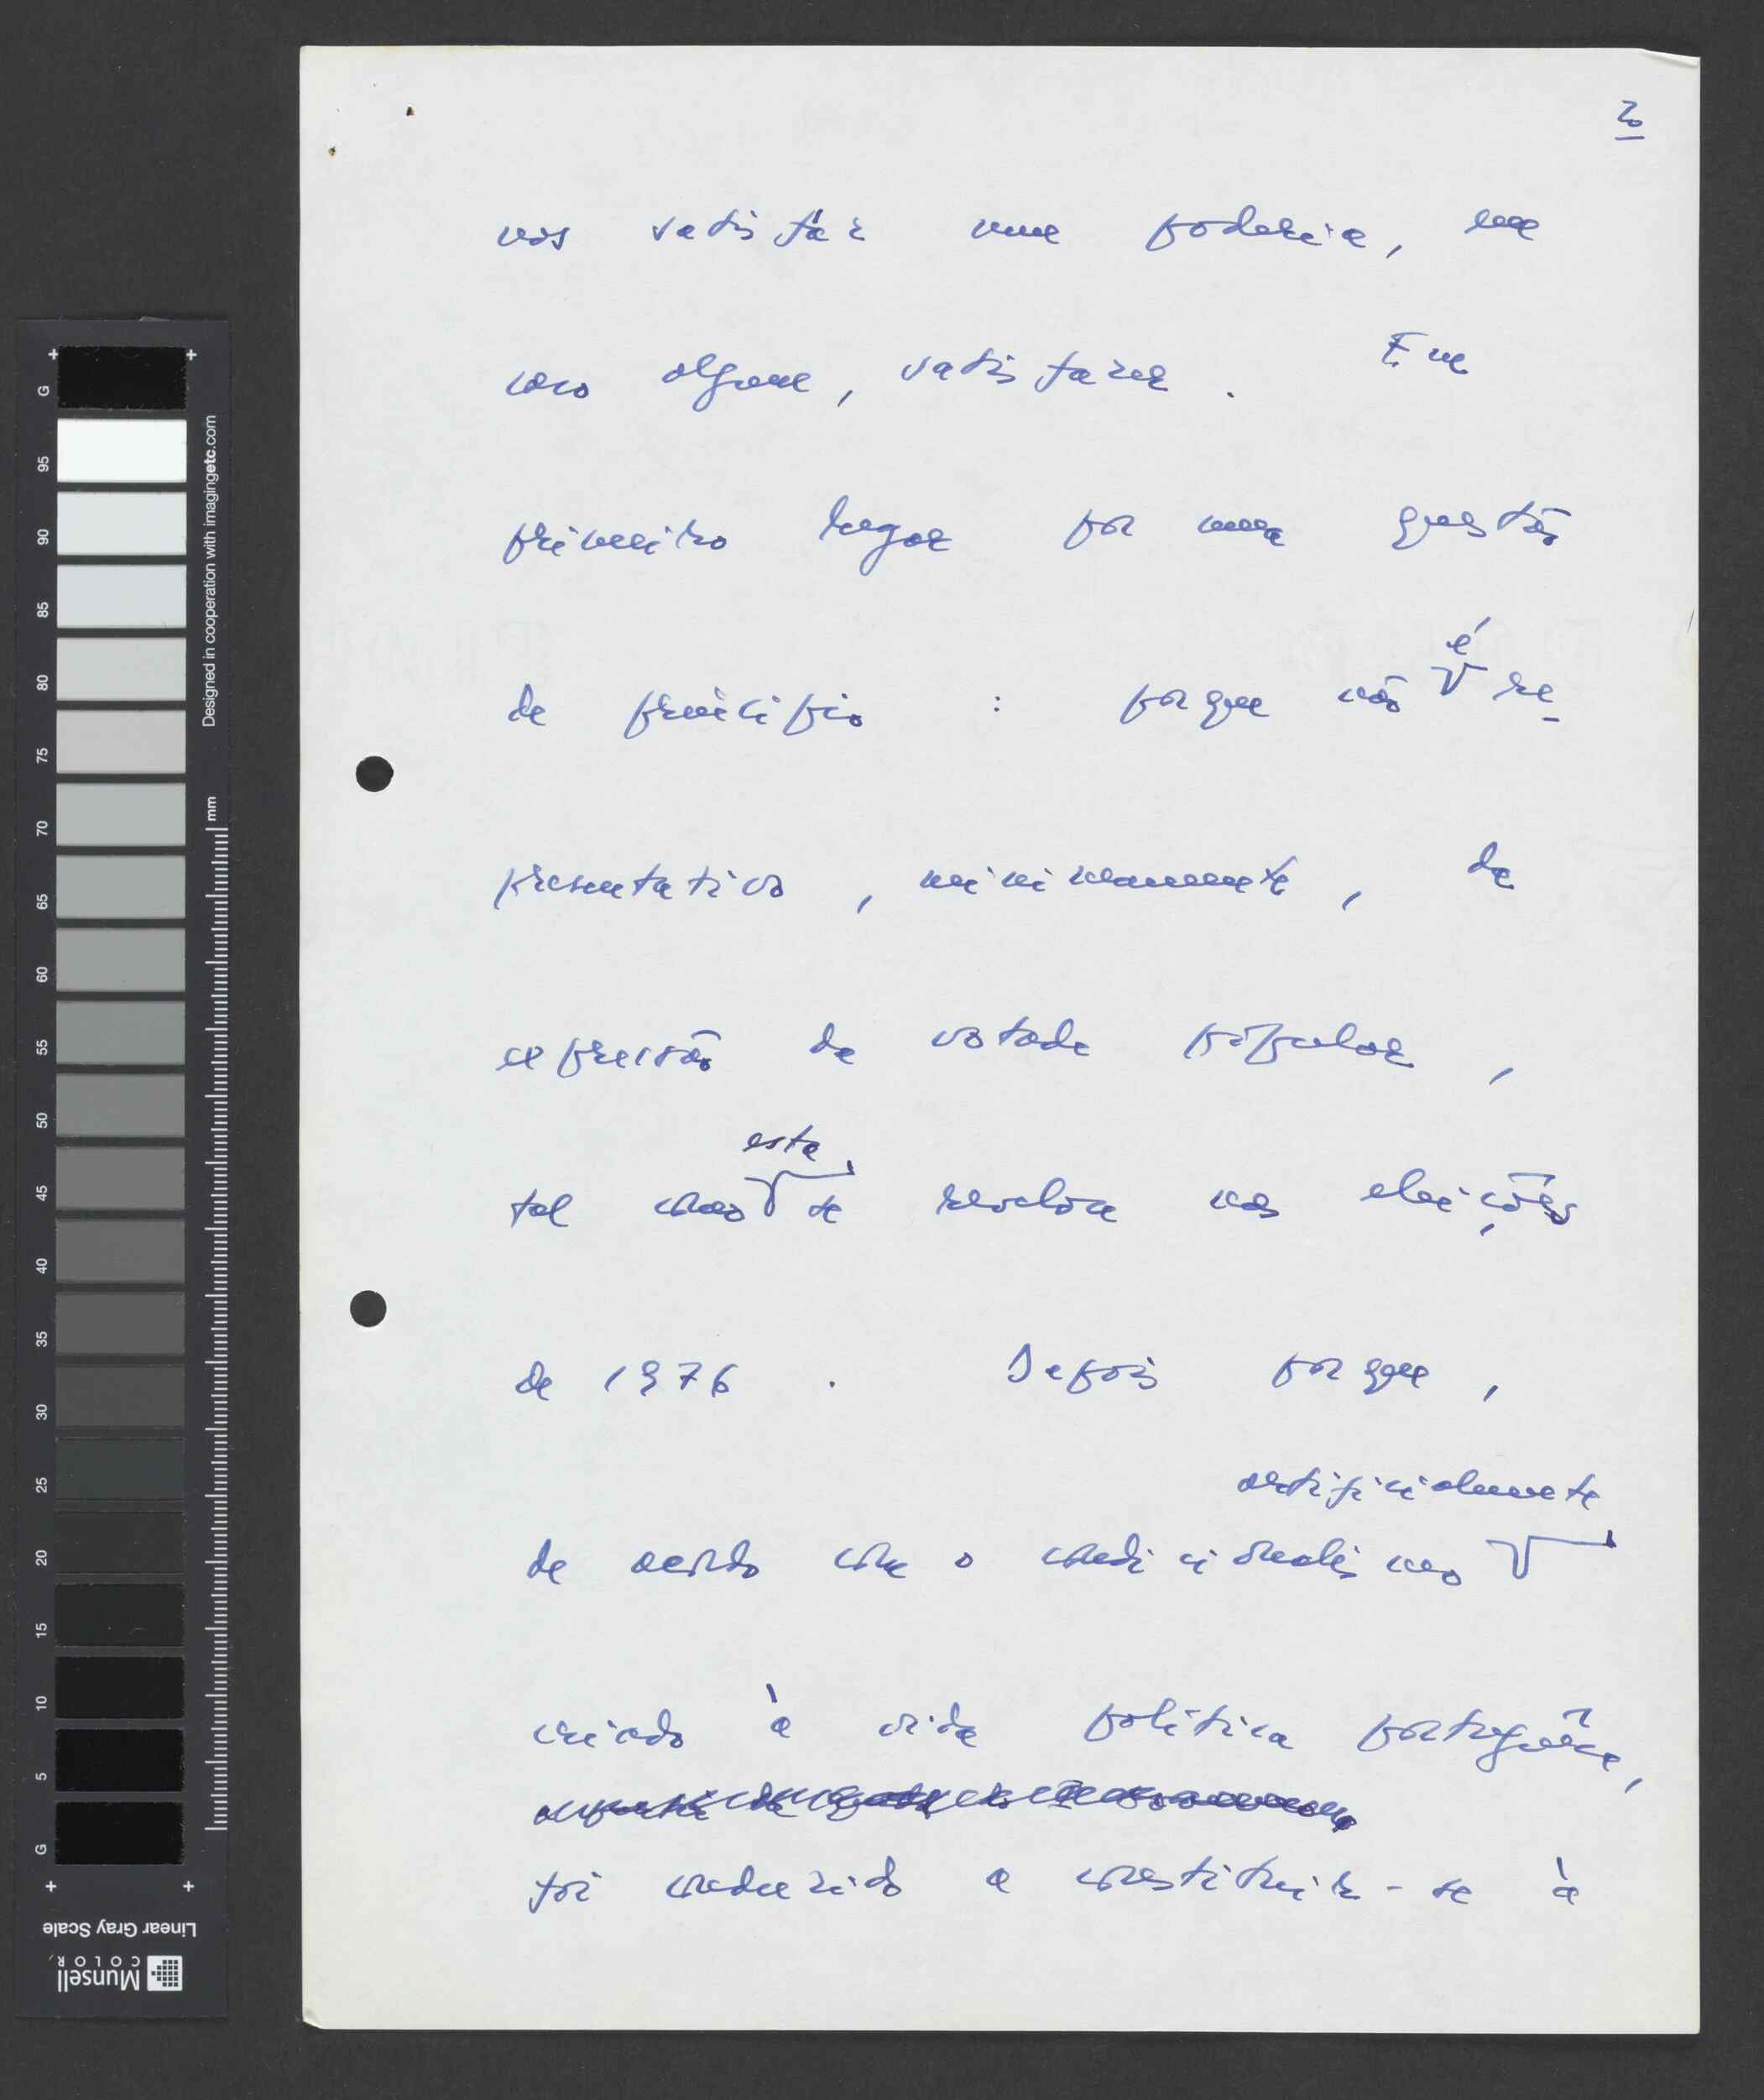 2
nos satisfaz nem poderia, em
caso algum, satisfazer. Em
primeiro lugar por uma questão
de princípio : porque não é re-
presentativo, minimamente, da
expressão da vontade popular,
tal como esta se revelou nas eleições
de 1976. Depois porque,
de acordo com o condicionalismo artificialmente
criado à vida política portuguesa,
foi conduzido a constituir-se à
G
95
90
85
80
75
70
65
60
55
50
45
40
35
30
25
20
15
10
5
G
Designed in cooperation with imagingetc.com
mm
Linear Gray Scale
Munsell
COLOR